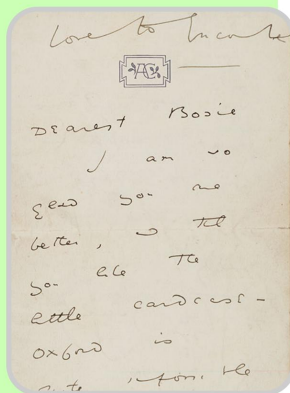 love to Encombe
AC
Dearest Bosie
I am so
glad you are
better, and that
you like the
little cardcase –
Oxford is
quite impossible